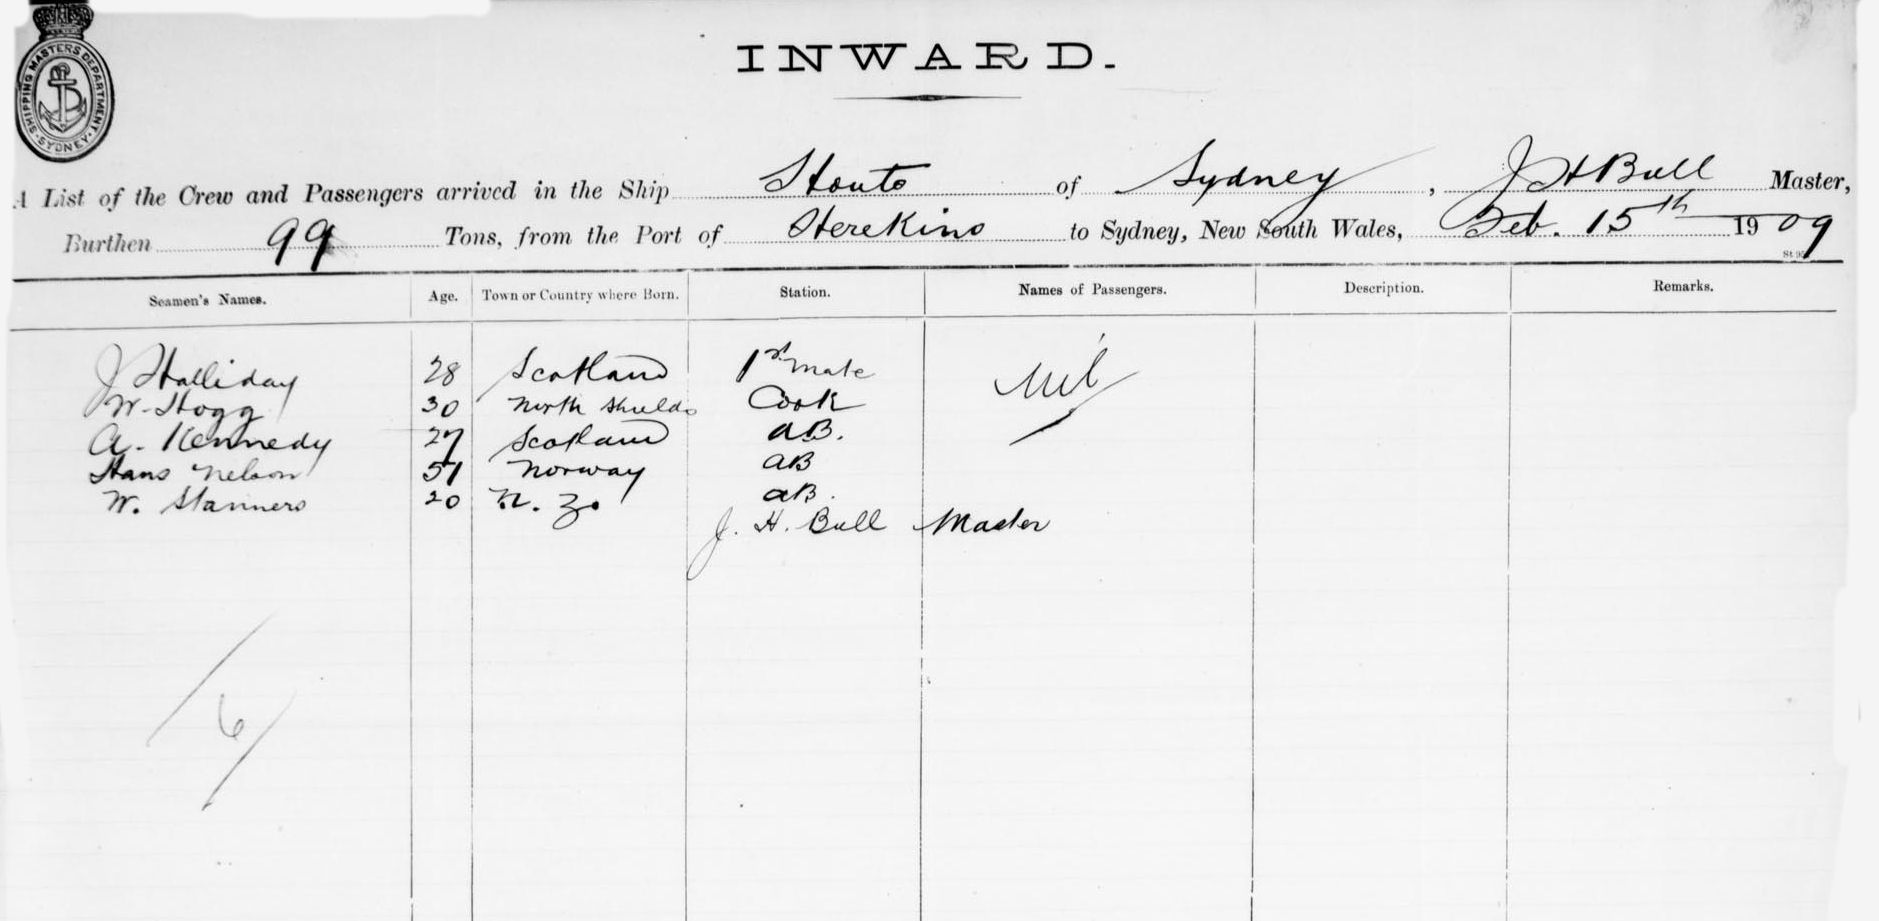 SHIPPING MASTERS DEPARTMENT · SYDNEY
INWARD.
A List of the Crew and Passengers arrived in the Ship Houto of Sydney, J H Bull Master,
Burthen 99 Tons, from the Port of Herekino to Sydney, New South Wales, Feb. 15th 1909
Seamen's Names. Age. Town or Country where Born. Station. Names of Passengers. Description. Remarks.
J Halliday 28 Scotland 1st Mate Nil
W. Hogg 30 North Shields Cook
A. Kennedy 27 Scotland AB.
Hans Nelson 51 Norway AB
W. Stanners 20 N. Z. AB.
J. H. Bull Master
/6/